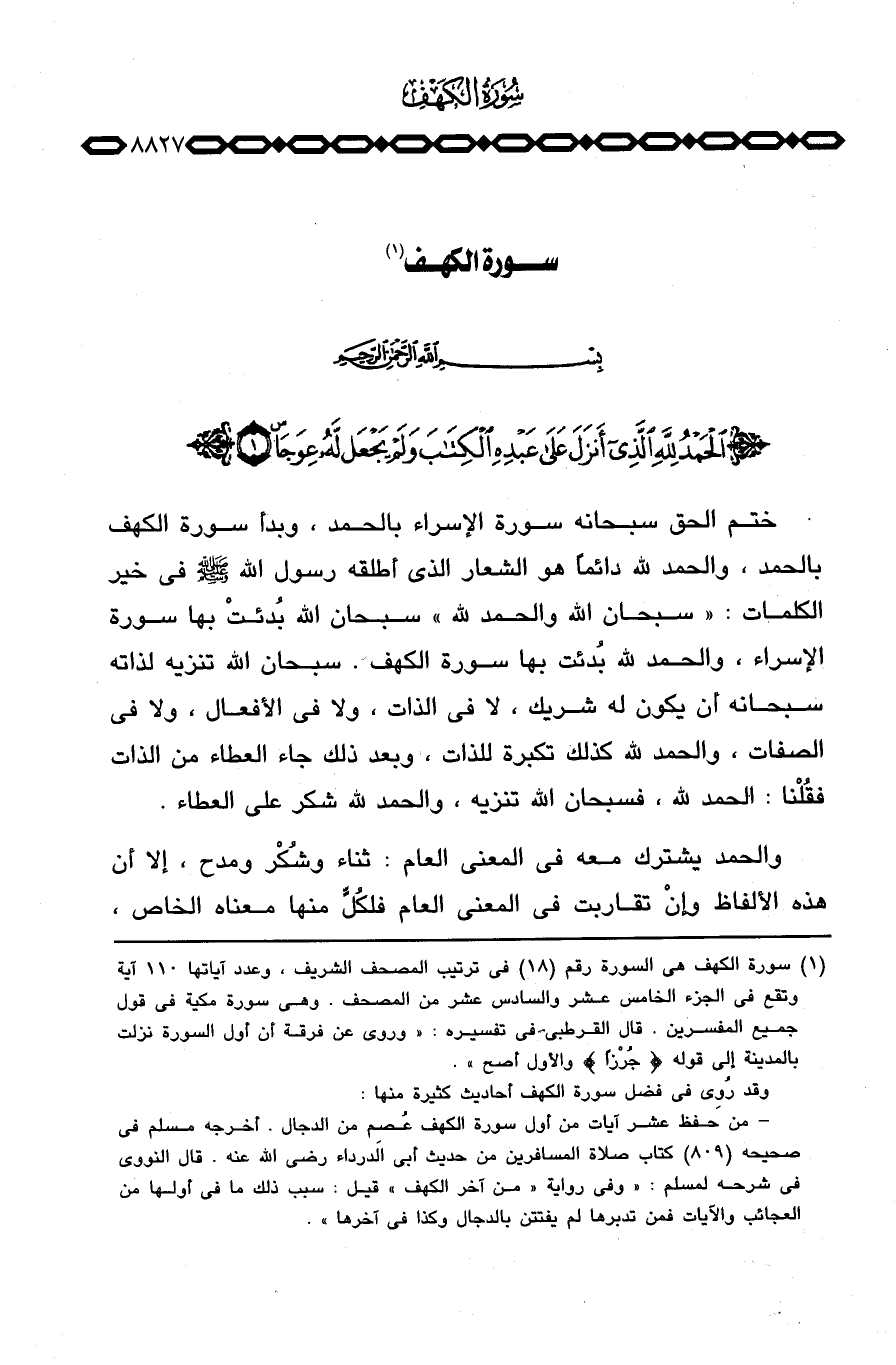 سُورَةُ الكَهَفِ
٨٨٢٧
سورة الكهف(١)
بِسْمِ اللَّهِ الرَّحْمَٰنِ الرَّحِيمِ
الْحَمْدُ لِلَّهِ الَّذِىٓ أَنزَلَ عَلَىٰ عَبْدِهِ الْكِتَٰبَ وَلَمْ يَجْعَل لَّهُۥ عِوَجَاۜ ١
ختم الحق سبحانه سورة الإسراء بالحمد ، وبدأ سورة الكهف
بالحمد ، والحمد لله دائماً هو الشعار الذى أطلقه رسول الله ﷺ فى خير
الكلمات : « سبحان الله والحمد لله » سبحان الله بُدئتْ بها سورة
الإسراء ، والحمد لله بُدئت بها سورة الكهف . سبحان الله تنزيه لذاته
سبحانه أن يكون له شريك ، لا فى الذات ، ولا فى الأفعال ، ولا فى
الصفات ، والحمد لله كذلك تكبرة للذات ، وبعد ذلك جاء العطاء من الذات
فقُلْنا : الحمد لله ، فسبحان الله تنزيه ، والحمد لله شكر على العطاء .
والحمد يشترك معه فى المعنى العام : ثناء وشُكْر ومدح ، إلا أن
هذه الألفاظ وإنْ تقاربت فى المعنى العام فلكُلٍّ منها معناه الخاص ،
(١) سورة الكهف هى السورة رقم (١٨) فى ترتيب المصحف الشريف ، وعدد آياتها ١١٠ آية
وتقع فى الجزء الخامس عشر والسادس عشر من المصحف . وهى سورة مكية فى قول
جميع المفسرين . قال القرطبى فى تفسيره : « وروى عن فرقة أن أول السورة نزلت
بالمدينة إلى قوله ﴿ جُرُزاً ﴾ والأول أصح » .
وقد رُوِى فى فضل سورة الكهف أحاديث كثيرة منها :
– من حفظ عشر آيات من أول سورة الكهف عُصم من الدجال . أخرجه مسلم فى
صحيحه (٨٠٩) كتاب صلاة المسافرين من حديث أبى الدرداء رضى الله عنه . قال النووى
فى شرحه لمسلم : « وفى رواية « من آخر الكهف » قيل : سبب ذلك ما فى أولها من
العجائب والآيات فمن تدبرها لم يفتتن بالدجال وكذا فى آخرها » .